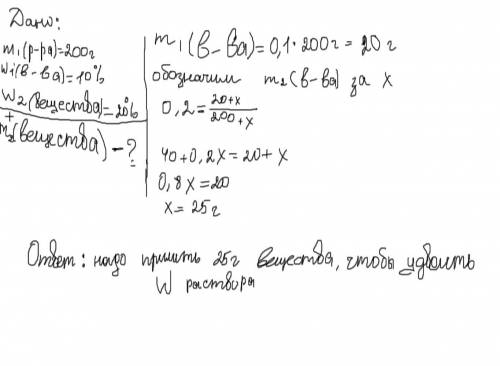 Дано:
m₁(р-ра)=200г
W₁(в-ва)=10%
W₂(вещества)=20%
m₂⁺(вещества)-?
m₁(в-ва)=0,1·200г=20г
обозначим m₂(в-ва) за x
0,2=20+x/200+x
40+0,2x=20+x
0,8x=20
x=25г
Ответ: надо 25г вещества, чтобы удвоить
W раствора